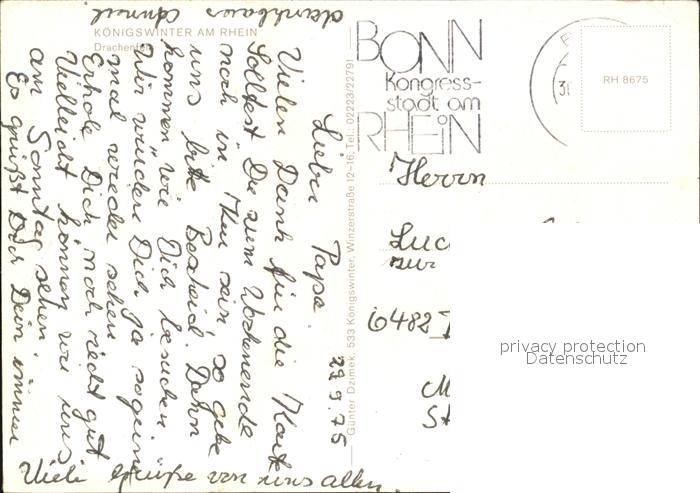 KÖNIGSWINTER AM RHEIN
Drachenfels
29.9.75
Lieber Papa.
Vielen Dank für die Karte
Solltest Du zum Wochenende
noch in Ken sein, so gebe
uns bitte Bescheid. Dann
kommen wir Dich besuchen
Wir würden Dich ja so gern
mal wieder sehen
Erhole Dich noch recht gut
Vielleicht können wir uns
am Sonntag sehen.
Es grüßt Dich Dein immer
Viele Grüße von uns allen.
Günter Dzimek, 533 Königswinter, Winzerstraße 12–16, Tel.: 02223/22791
BONN
Kongress-
stadt am
RHEIN
RH 8675
Herrn
Luc
zur
6482
privacy protection
Datenschutz